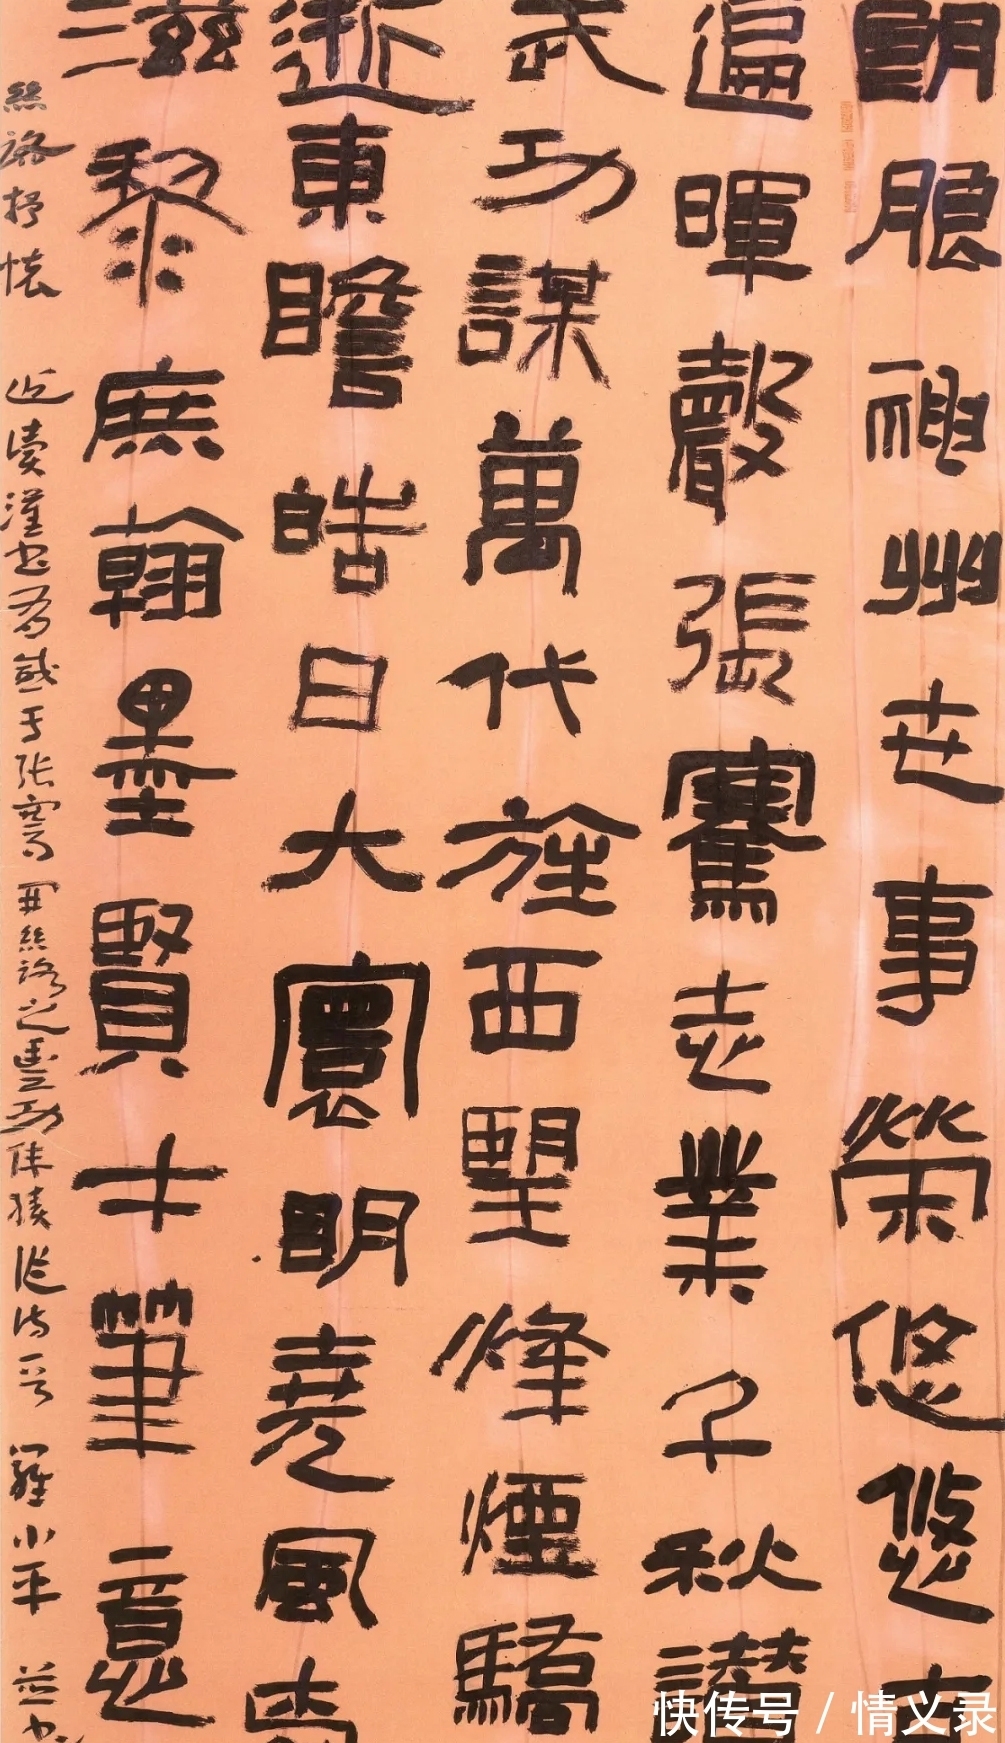 朗朗神州世事榮悠悠古
遍暉聲張騫志業千秋讚
武功謀萬代旌西望烽煙驕
逝東瞻皓日大寰明堯風
滋黎庶翰墨賢才筆意
絲路抒懷 近讀漢書有感于张騫開絲路之豐功偉績作诗一首 羅小平並书
快传号/情义录